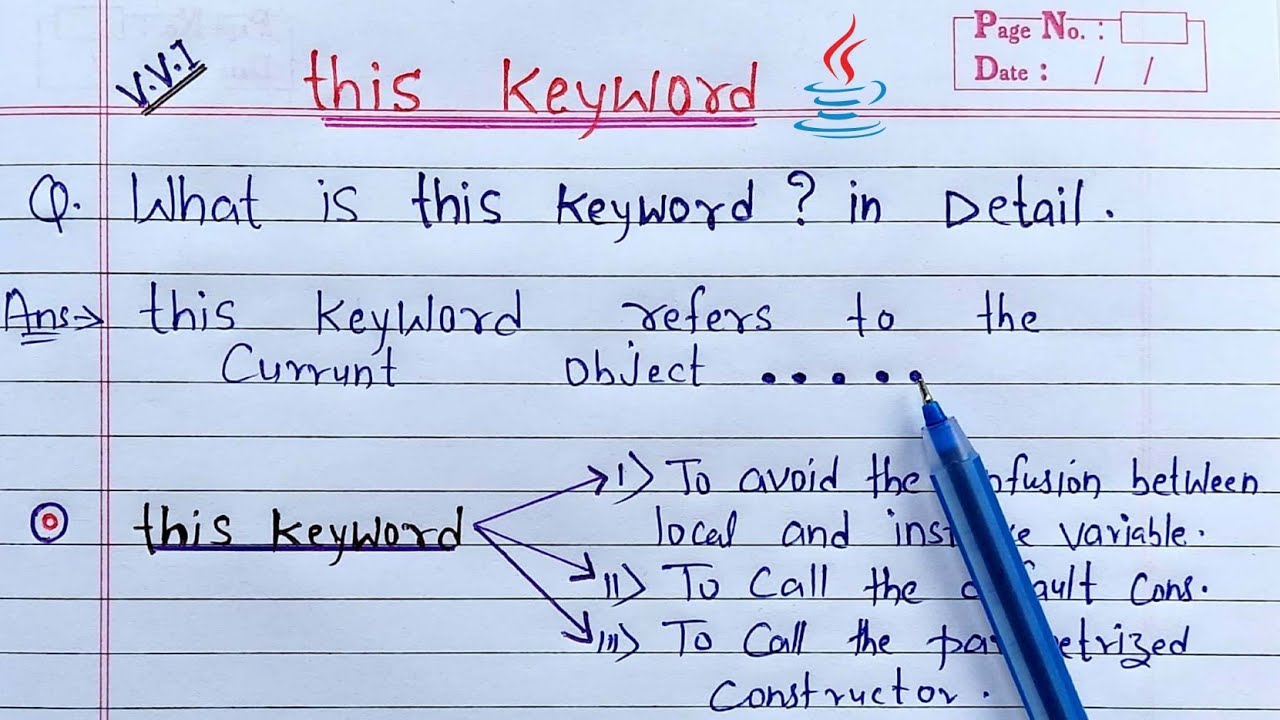 Page No. :
Date : / /
V.V.I
this keyword
Q. What is this keyword? in Detail.
Ans→ this keyword refers to the
Currunt object .....
this keyword
i) To avoid the between
local and variable.
ii) To Call the Cons.
iii) To Call the
Constructor.